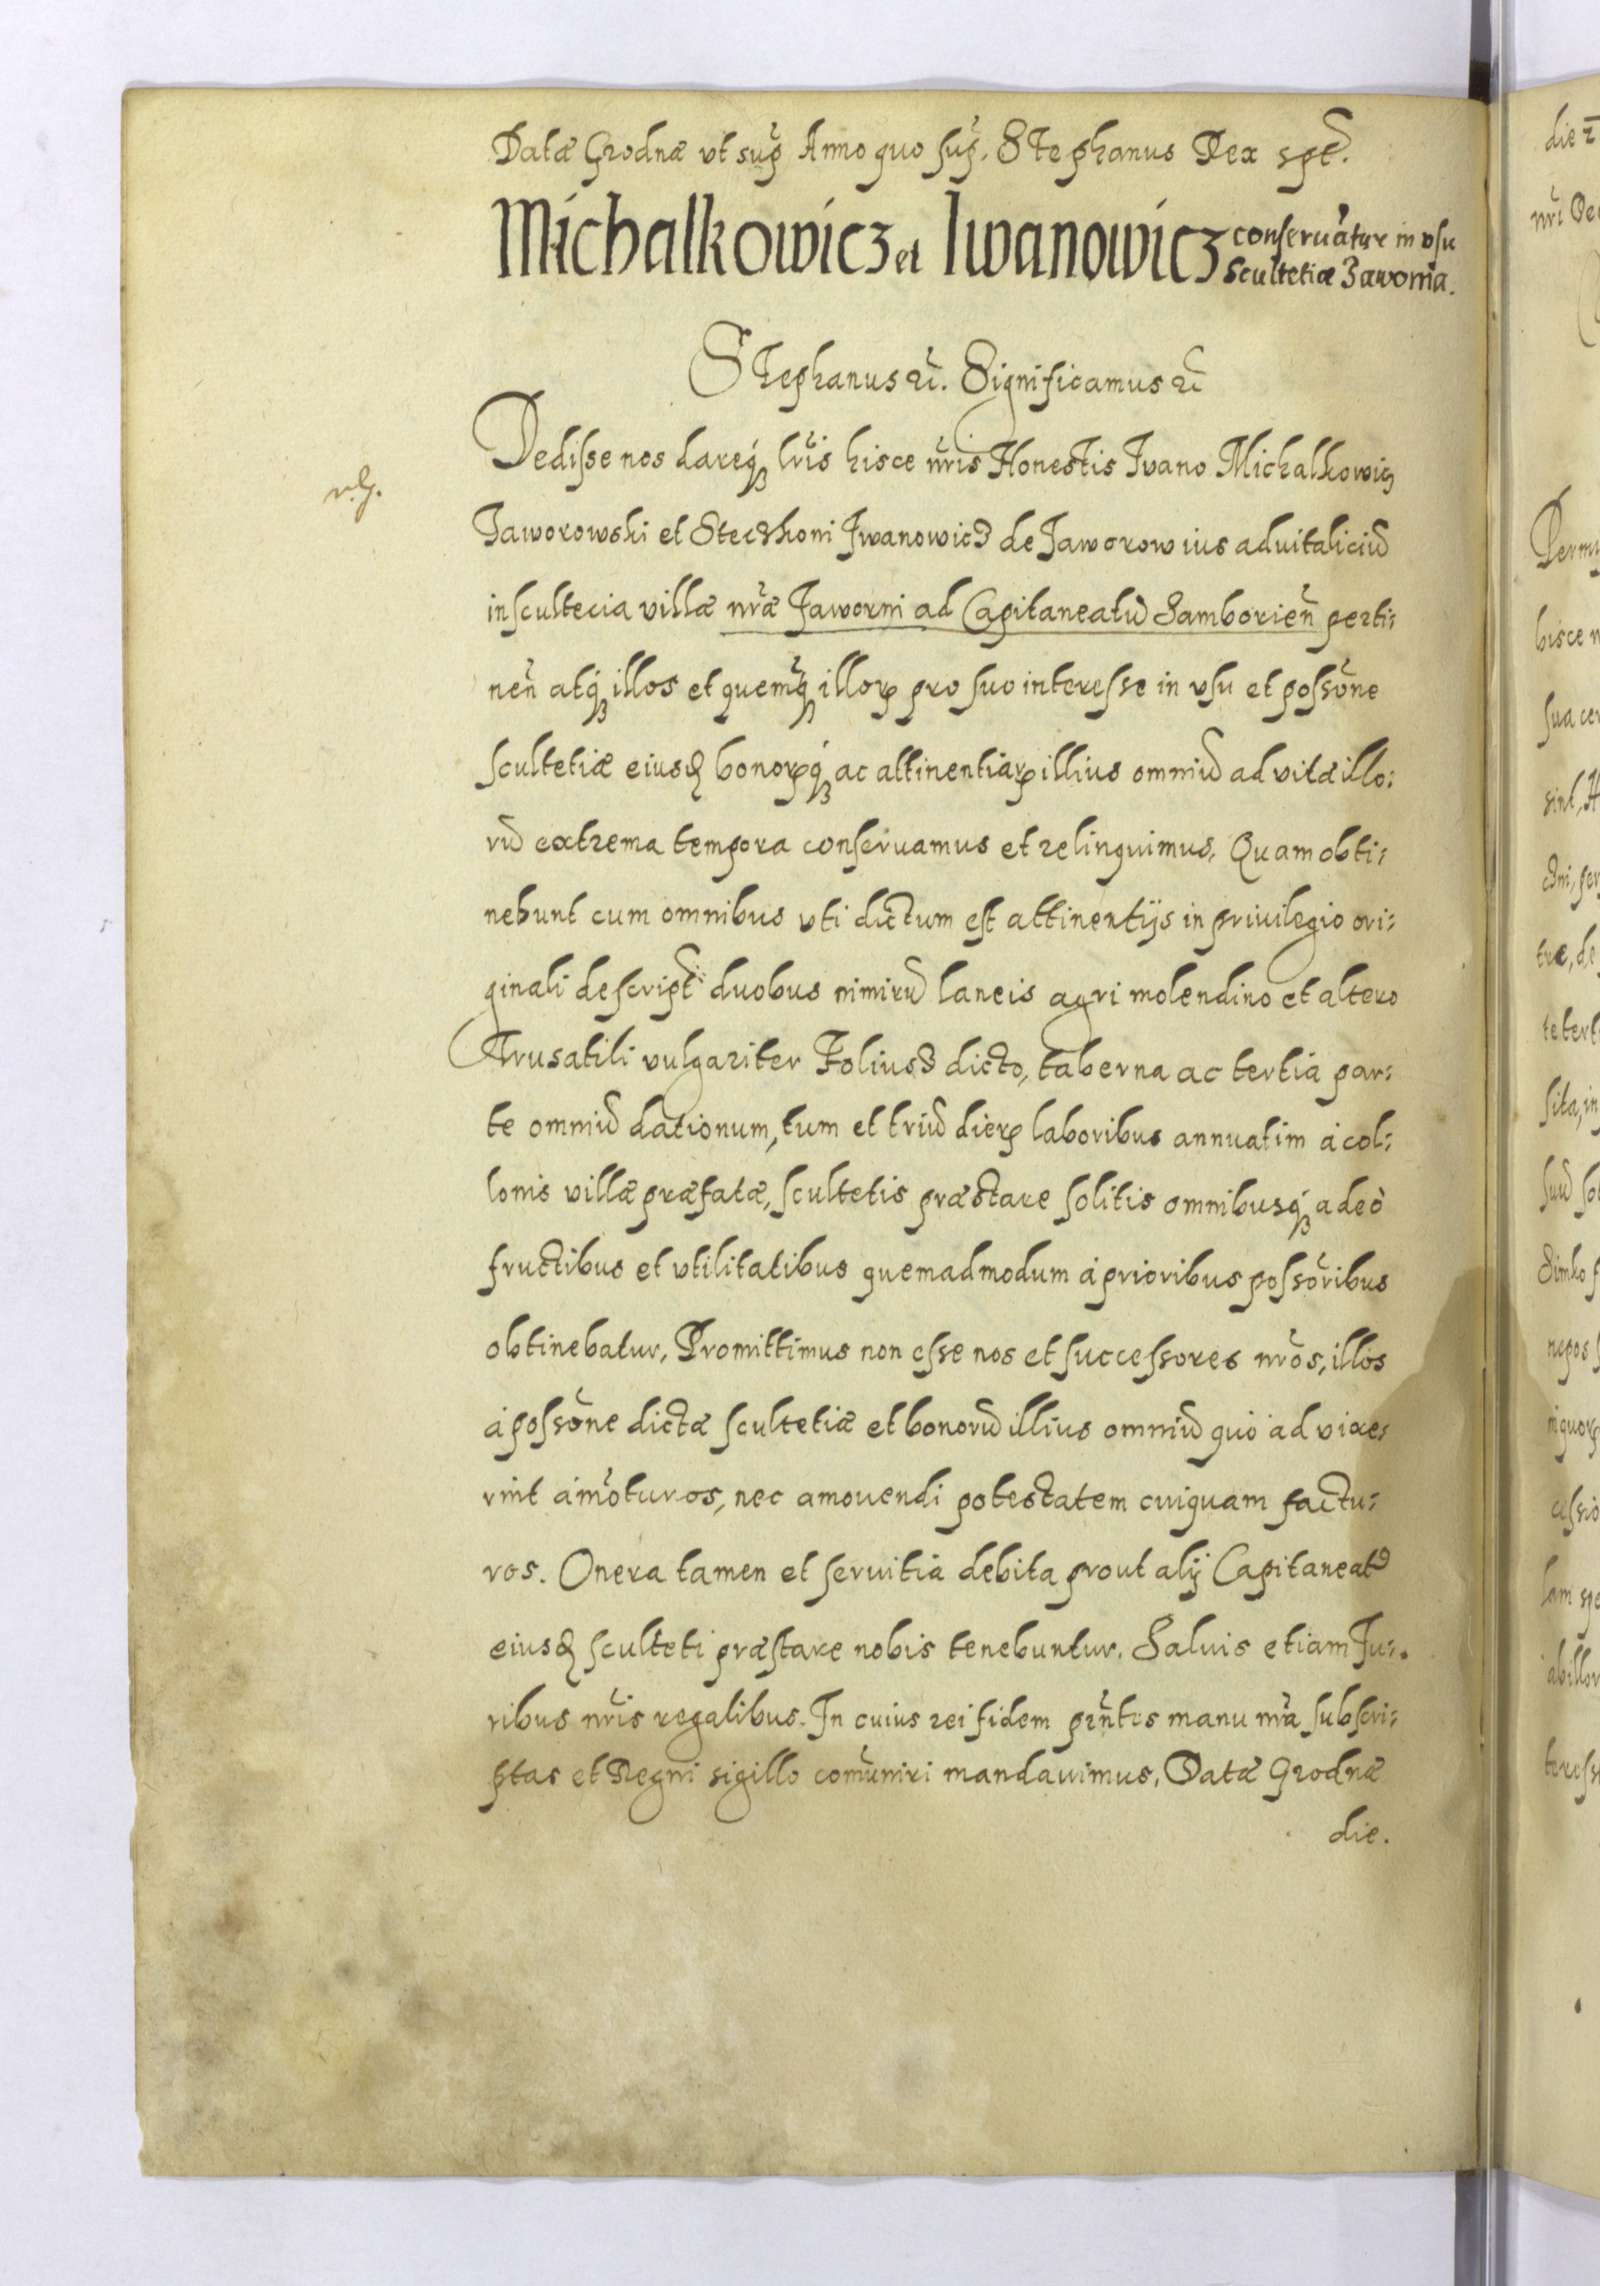 Datæ Grodnæ vt sup̃ Anno quo sup̃. Stephanus Rex spt̃.
Michalkowicz et Iwanowicz conseruãtur in vsu
Scultetiæ Jaworna.
Stephanus ꝛc̃. Significamus ꝛc̃
Dedisse nos dareq́ꝫ lr̃is hisce nr̃is Honestis Jvano Michalkowicz
Jaworowski et Steczkoni Jwanowicz de Jaworow ius aduitaliciũ
in scultecia villæ nr̃æ Jaworni ad Capitaneatũ Samborień perti⹀
neñ atq́ꝫ illos et quemq̃ꝫ illoꝝ pro suo interesse in vsu et possõne
scultetiæ eiusđ bonoꝝq́ꝫ ac attinentiaꝝ illius omniũ ad vitæ illo⹀
rũ extrema tempora conseruamus et relinquimus. Quam obti⹀
nebunt cum omnibus vti dictum est attinentijs in priuilegio ori⹀
ginali descript̃ duobus nimirũ laneis agri molendino et altero
Trusatili vulgariter Foliusz dicto, taberna ac tertia par⹀
te omniũ dationum, tum et triũ dieꝝ laboribus annuatim à col⹀
lonis villæ præfatæ, scultetis præstare solitis omnibusq́ꝫ adeò
fructibus et vtilitatibus quemadmodum à prioribus possõribus
obtinebatur. Promittimus non esse nos et successores nr̃os, illos
à possõne dictæ scultetiæ et bonorũ illius omniũ quò ad vixe⹀
rint am̃oturos, nec amouendi potestatem cuiquam factu⹀
ros. Onera tamen et seruitia debita prout alij Capitaneatꝰ
eiusđ sculteti præstare nobis tenebuntur. Saluis etiam Ju⹀
ribus nr̃is regalibus. In cuius rei fidem prñtes manu nr̃a subscri⹀
ptas et Regni sigillo com̃uniri mandauimus. Datæ Grodnæ
die.